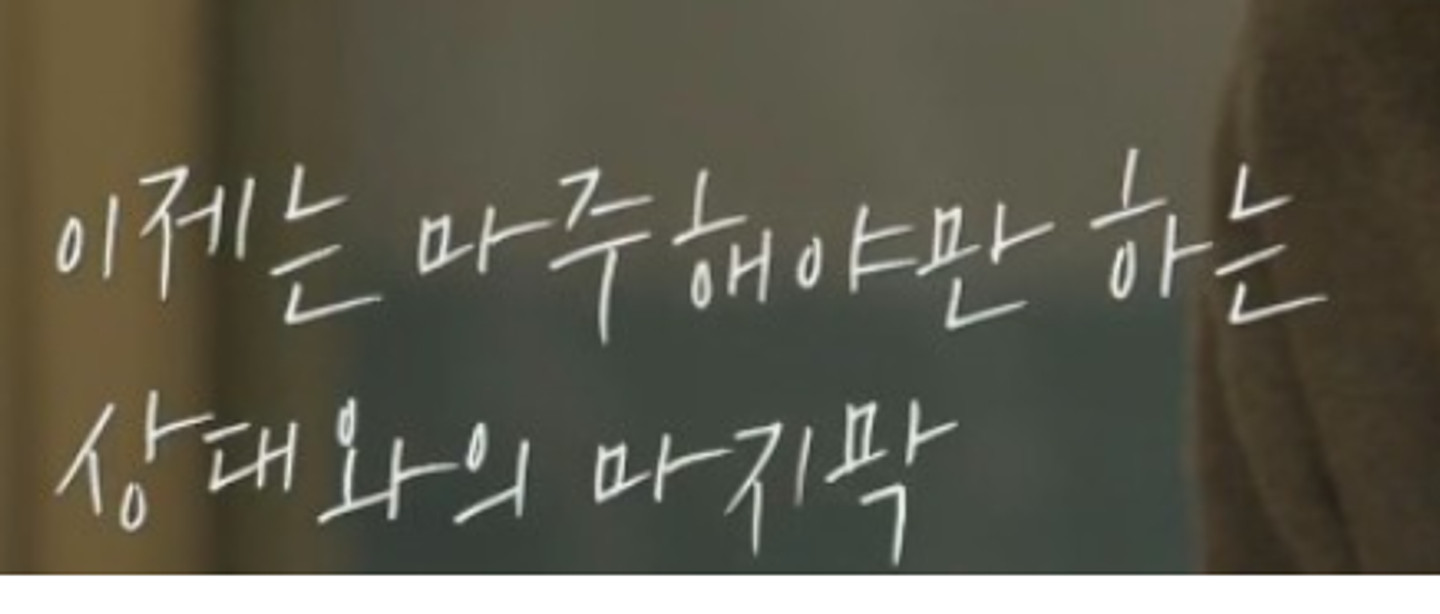 이제는 마주해야만 하는
상대와의 마지막